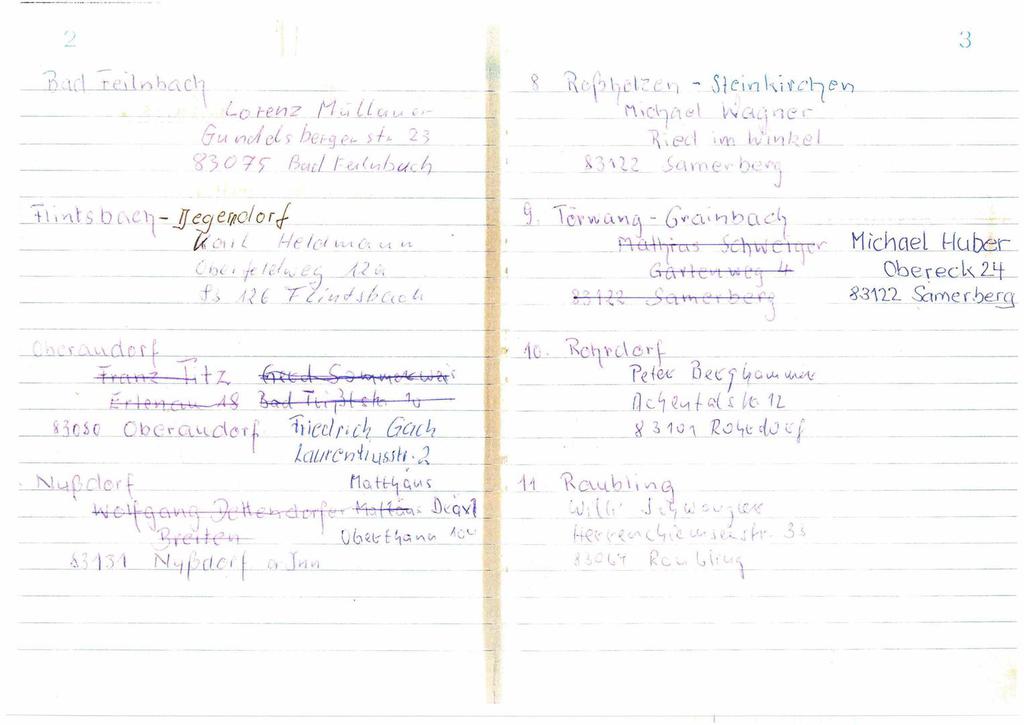 2
Bad Feilnbach
Lorenz Müllauer
Gundelsbergerstr. 23
83075 Bad Feilnbach
Flintsbach - Degendorf
Karl Heldmann
Oberfeldweg 12a
83126 Flintsbach
Oberaudorf
Franz Titz Gerd
Erlenau 18 Bad
83080 Oberaudorf Friedrich Gach
Laurentiusstr. 2
Nußdorf Matthäus
Wolfgang Dettendorfer Deaxl
Breiten Überthann
83131 Nußdorf a Inn
3
8 Roßholzen - Steinkirchen
Michael Wagner
Ried im Winkel
83122 Samerberg
9. Törwang - Grainbach
Mathias Schweiger Michael Huber
Gartenweg 4 Obereck 24
83122 Samerberg 83122 Samerberg
10. Rohrdorf
Peter Berghammer
Achentalstr. 12
83101 Rohrdorf
11 Raubling
Willi
Herrenchiemseestr. 33
83064 Raubling